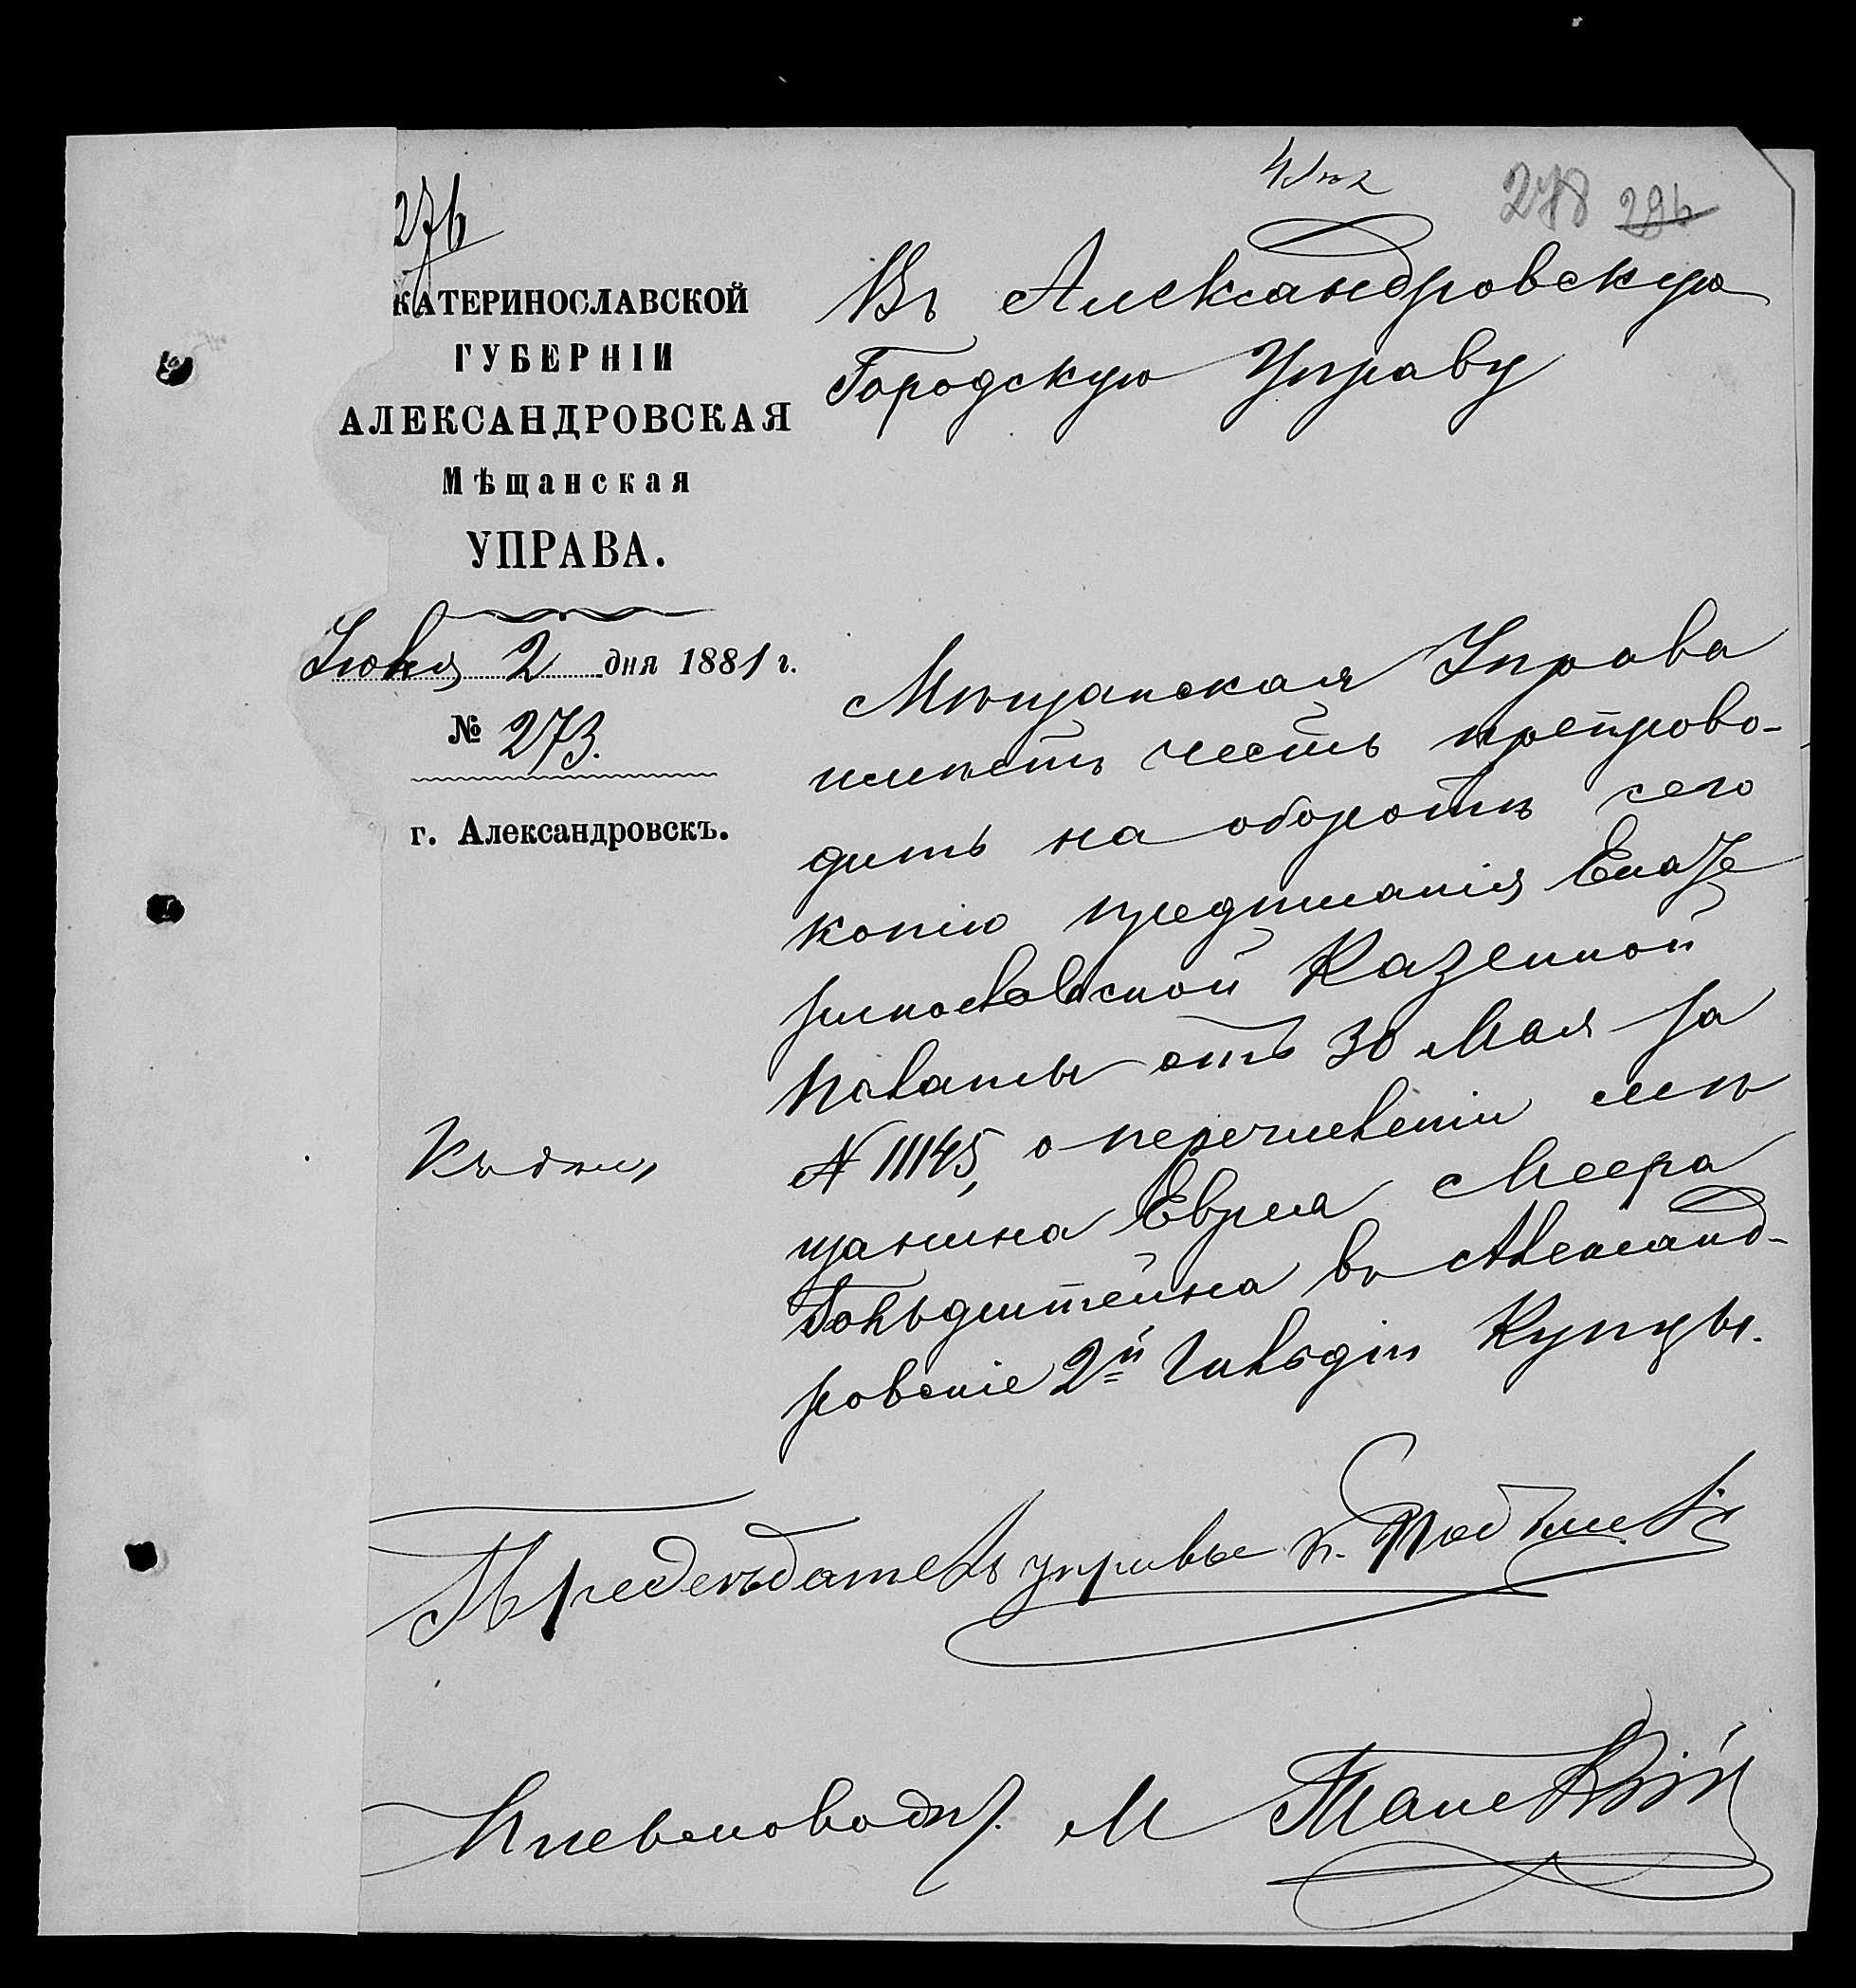 276
278 296
КАТЕРИНОСЛАВСКОЙ
ГУБЕРНІИ
АЛЕКСАНДРОВСКАЯ
Мѣщанская
УПРАВА.
Іюня 2 дня 1881 г.
№ 273.
г. Александровскъ.
Въ Александровскую
Городскую Управу
Мѣщанская Управа
имѣетъ честь препрово-
дить на оборотѣ сего
копію предписанія Екате
ринославской Казенной
Палаты отъ 30 Мая за
№ 11145, о перечисленіи мѣ
щанина Еврея Меера
Гольдштейна въ Александ-
ровскіе 2й Гильдіи Купцы.
Къ дѣлу
Предсѣдатель управы
Письмоводит. М